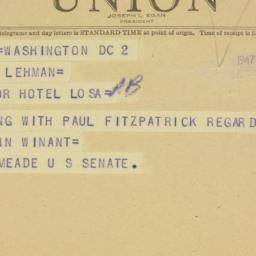 UNION
JOSEPH L. EGAN
PRESIDENT
telegrams and day letters is STANDARD TIME at point of origin. Time of receipt is
=WASHINGTON DC 2
LEHMAN=
OR HOTEL LOSA=
NG WITH PAUL FITZPATRICK REGARD
IN WINANT=
MEADE U S SENATE.